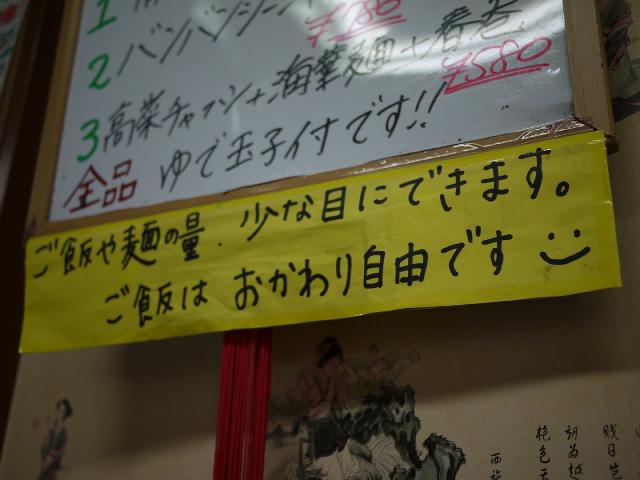 1
2 バンバンジー
3 高菜チャーハン+海葉麺+春巻 ¥580
全品 ゆで玉子付です!!
ご飯や麺の量、少な目にできます。
ご飯は おかわり自由です
西施
艶色天
朝為越
賎日豈